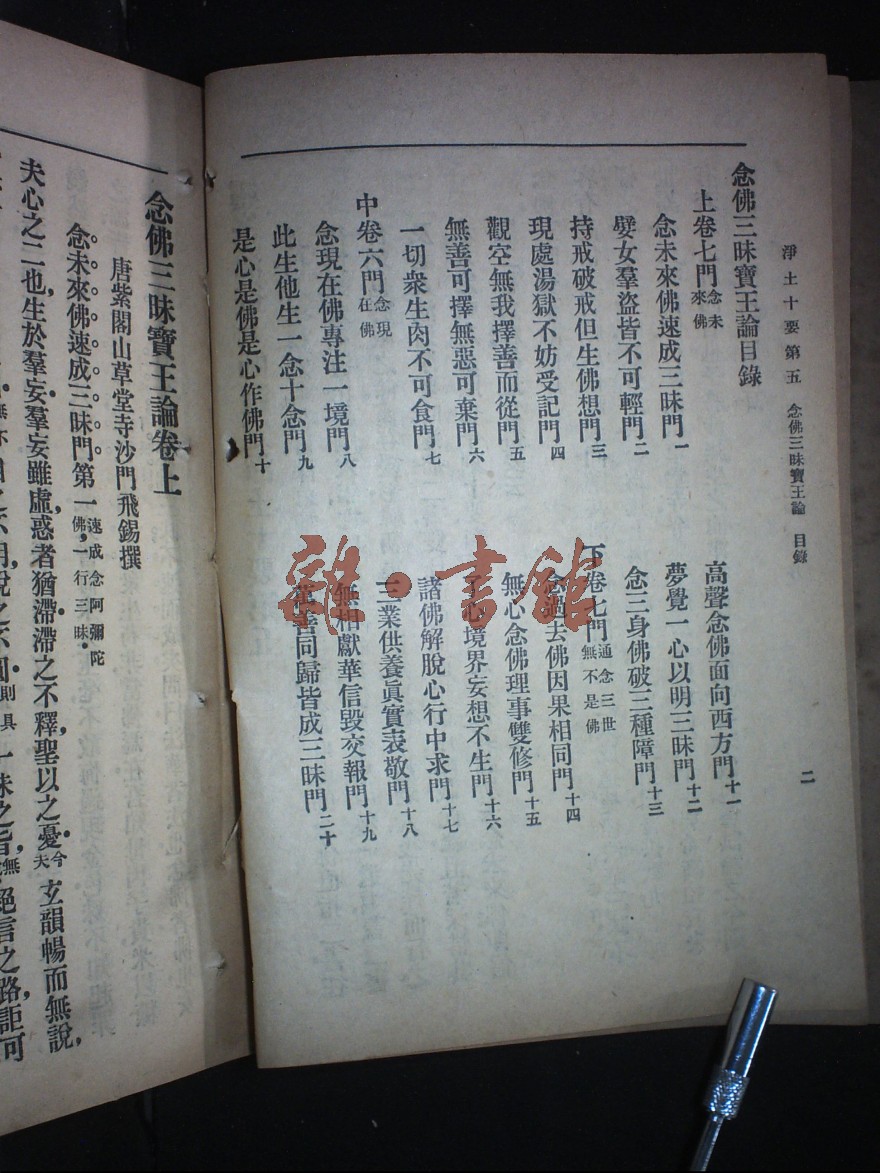 淨土十要第五 念佛三昧寶王論 目錄 二
念佛三昧寶王論目錄
上卷七門 念未來佛
念未來佛速成三昧門 一
嬖女羣盜皆不可輕門 二
持戒破戒但生佛想門 三
現處湯獄不妨受記門 四
觀空無我擇善而從門 五
無善可擇無惡可棄門 六
一切衆生肉不可食門 七
中卷六門 念現在佛
念現在佛專注一境門 八
此生他生一念十念門 九
是心是佛是心作佛門 十
高聲念佛面向西方門 十一
夢覺一心以明三昧門 十二
念三身佛破三種障門 十三
下卷七門 通念三世無不是佛
念過去佛因果相同門 十四
無心念佛理事雙修門 十五
了心境界妄想不生門 十六
諸佛解脫心行中求門 十七
三業供養眞實表敬門 十八
無相獻華信毀交報門 十九
萬善同歸皆成三昧門 二十
雜·書館
念佛三昧寶王論卷上
唐紫閣山草堂寺沙門飛錫撰
念未來佛速成三昧門第一 速成念阿彌陀佛，一行三昧。
夫心之二也，生於羣妄，羣妄雖虛，惑者猶滯，滯之不釋，聖以之憂，今夫玄韻暢而無說，
一昧之旨，絕言之路，詎可